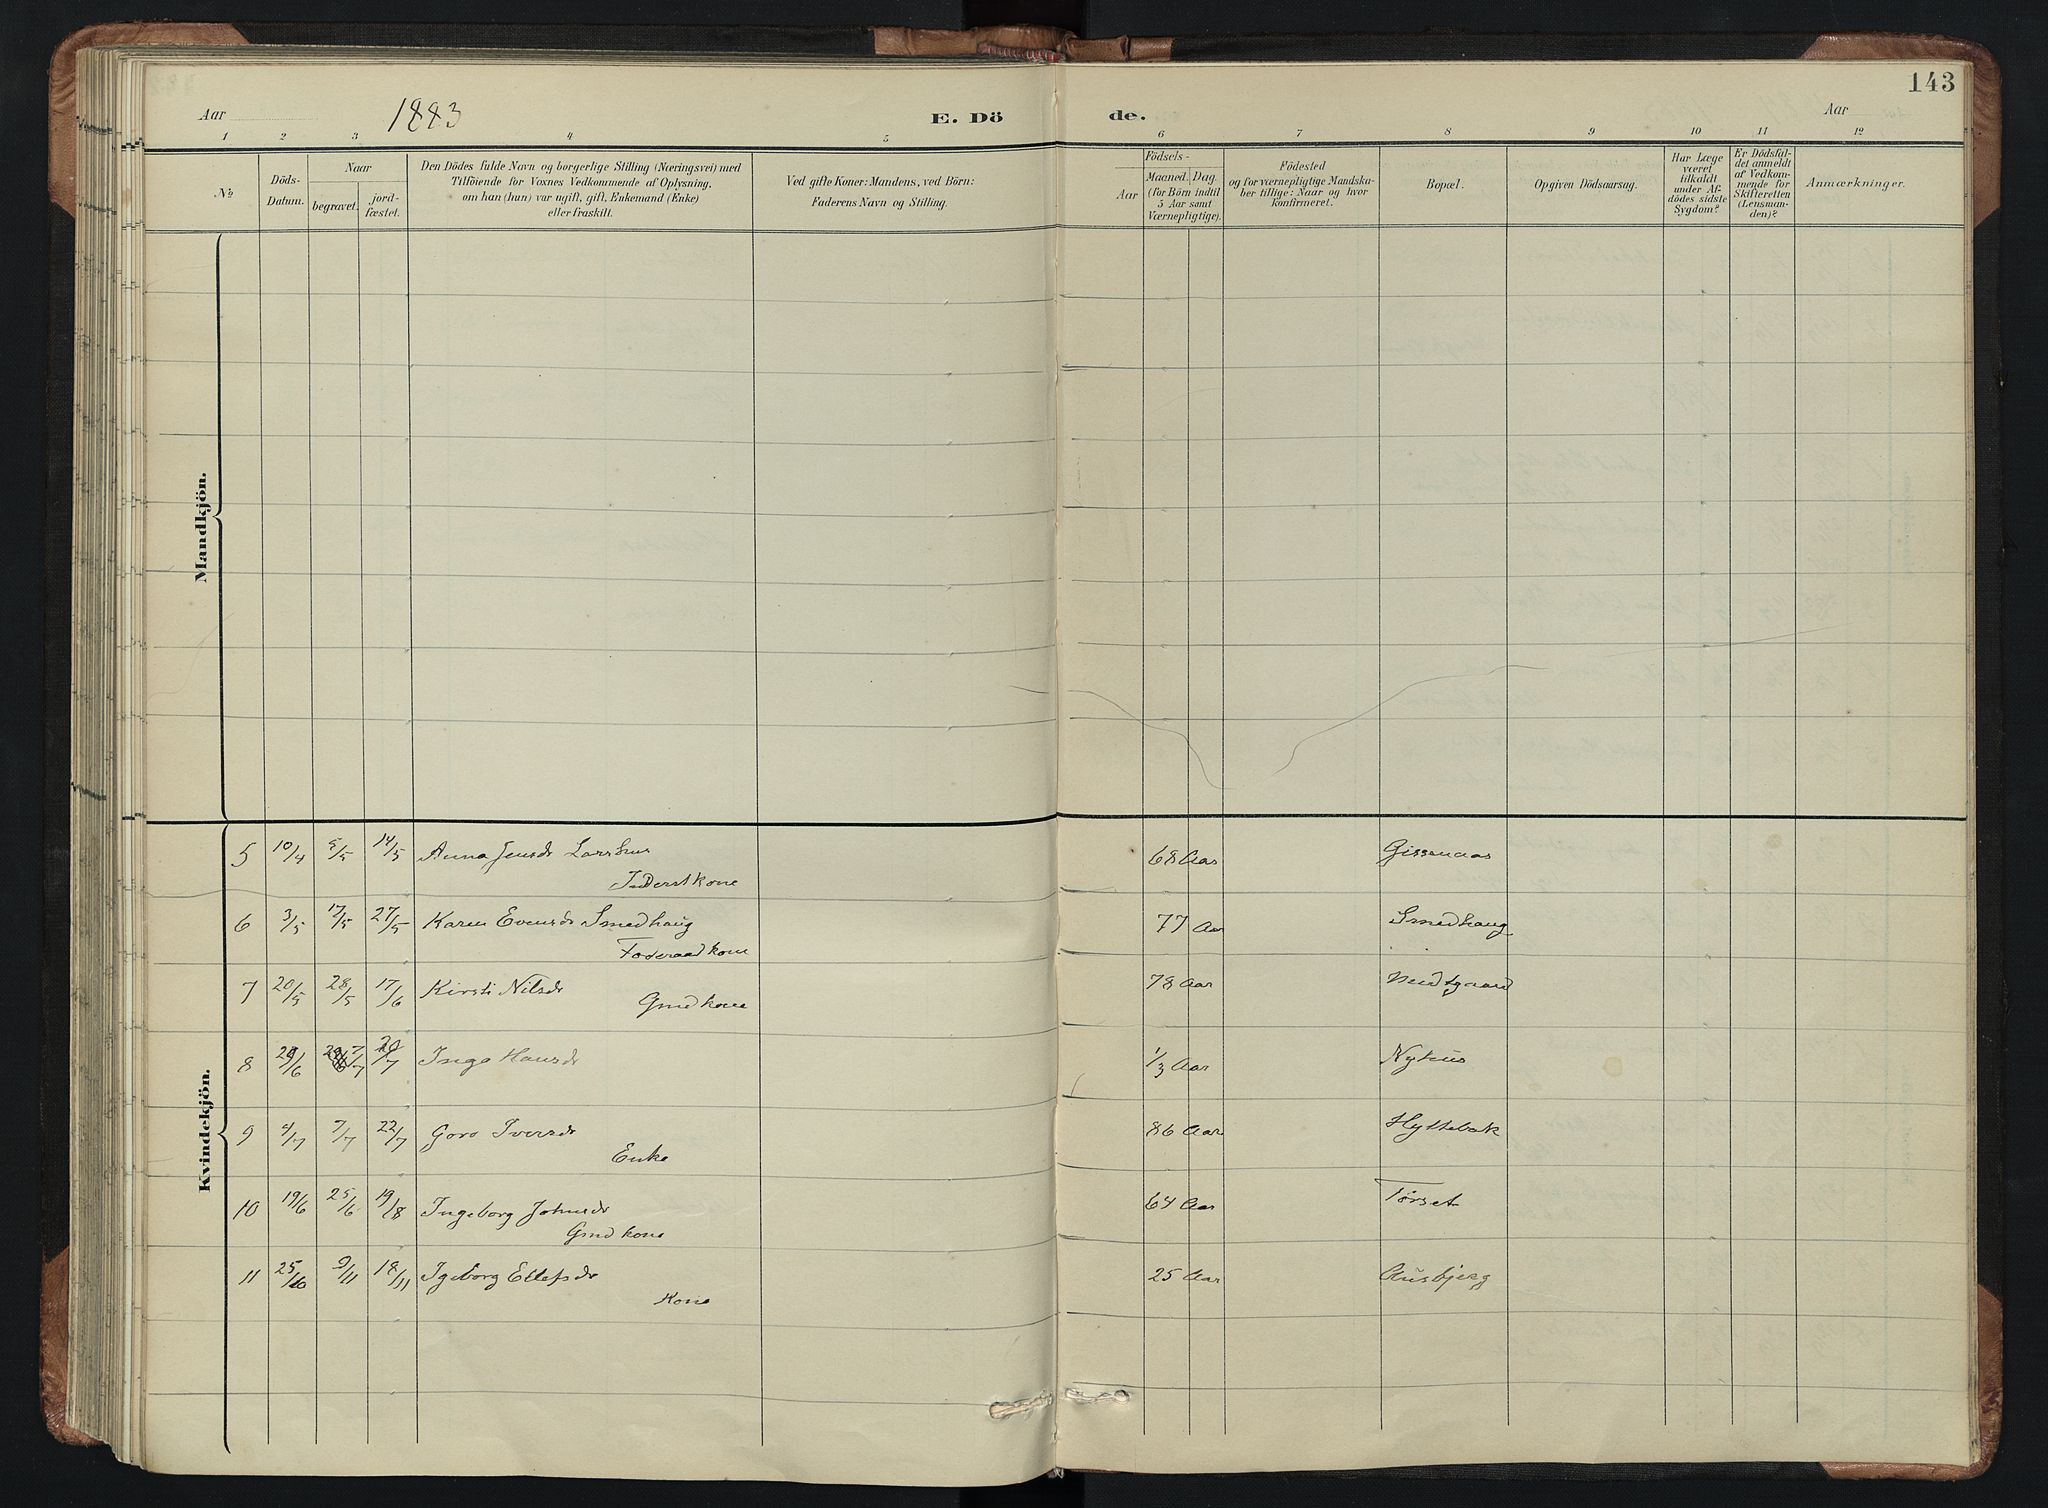 143
Aar 1883 E. Dö de. Aar
1 2 3 4 5 6 7 8 9 10 11 12
No
Döds-
Datum.
Naar
begravet.
jord-
fæstet.
Den Dödes fulde Navn og borgerlige Stilling (Næringsvei) med
Tilföiende for Voxnes Vedkommende af Oplysning,
om han (hun) var ugift, gift, Enkemand (Enke)
eller fraskilt.
Ved gifte Koner: Mandens, ved Börn:
Faderens Navn og Stilling.
Födsels-
Aar
Maaned. Dag.
(for Börn indtil
5 Aar samt
Værnepligtige).
Födested
og for værnepligtige Mandska-
ber tillige: Naar og hvor
konfirmeret.
Bopæl.
Opgiven Dödsaarsag.
Har Læge
været
tilkaldt
under Af-
dödes sidste
Sygdom?
Er Dödsfal-
det anmeldt
af Vedkom-
mende for
Skifteretten
(Lensman-
den)?
Anmærkninger.
Mandkjön.
Kvindekjön.
5 10/4 5/5 14/5 Anna Jensdr Larshus 68 Aar Gissenaas
Inderstkone
6 3/5 17/5 27/5 Karen Evensdr Smedhaug 77 Aar Smedhaug
Foderaadkone
7 20/5 28/5 17/6 Kirsti Nilsdr 78 Aar
Gmdkone
8 6 7/7 20/7 Inga Hansdr 1/3 Aar Nyhus
9 4/7 7/7 22/7 Goro Iversdr 86 Aar Hyttebak
Enke
10 19/6 25/6 19/8 Ingeborg Johnsdr 64 Aar Tørset
Gmdkone
11 25/10 9/11 18/11 Igeborg Ellefsdr 25 Aar Ausbjerg
Kone